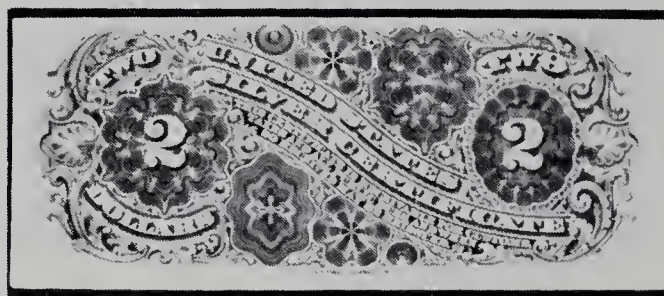 TWO
UNITED STATES
TWO
SILVER CERTIFICATE
2
2
DOLLARS